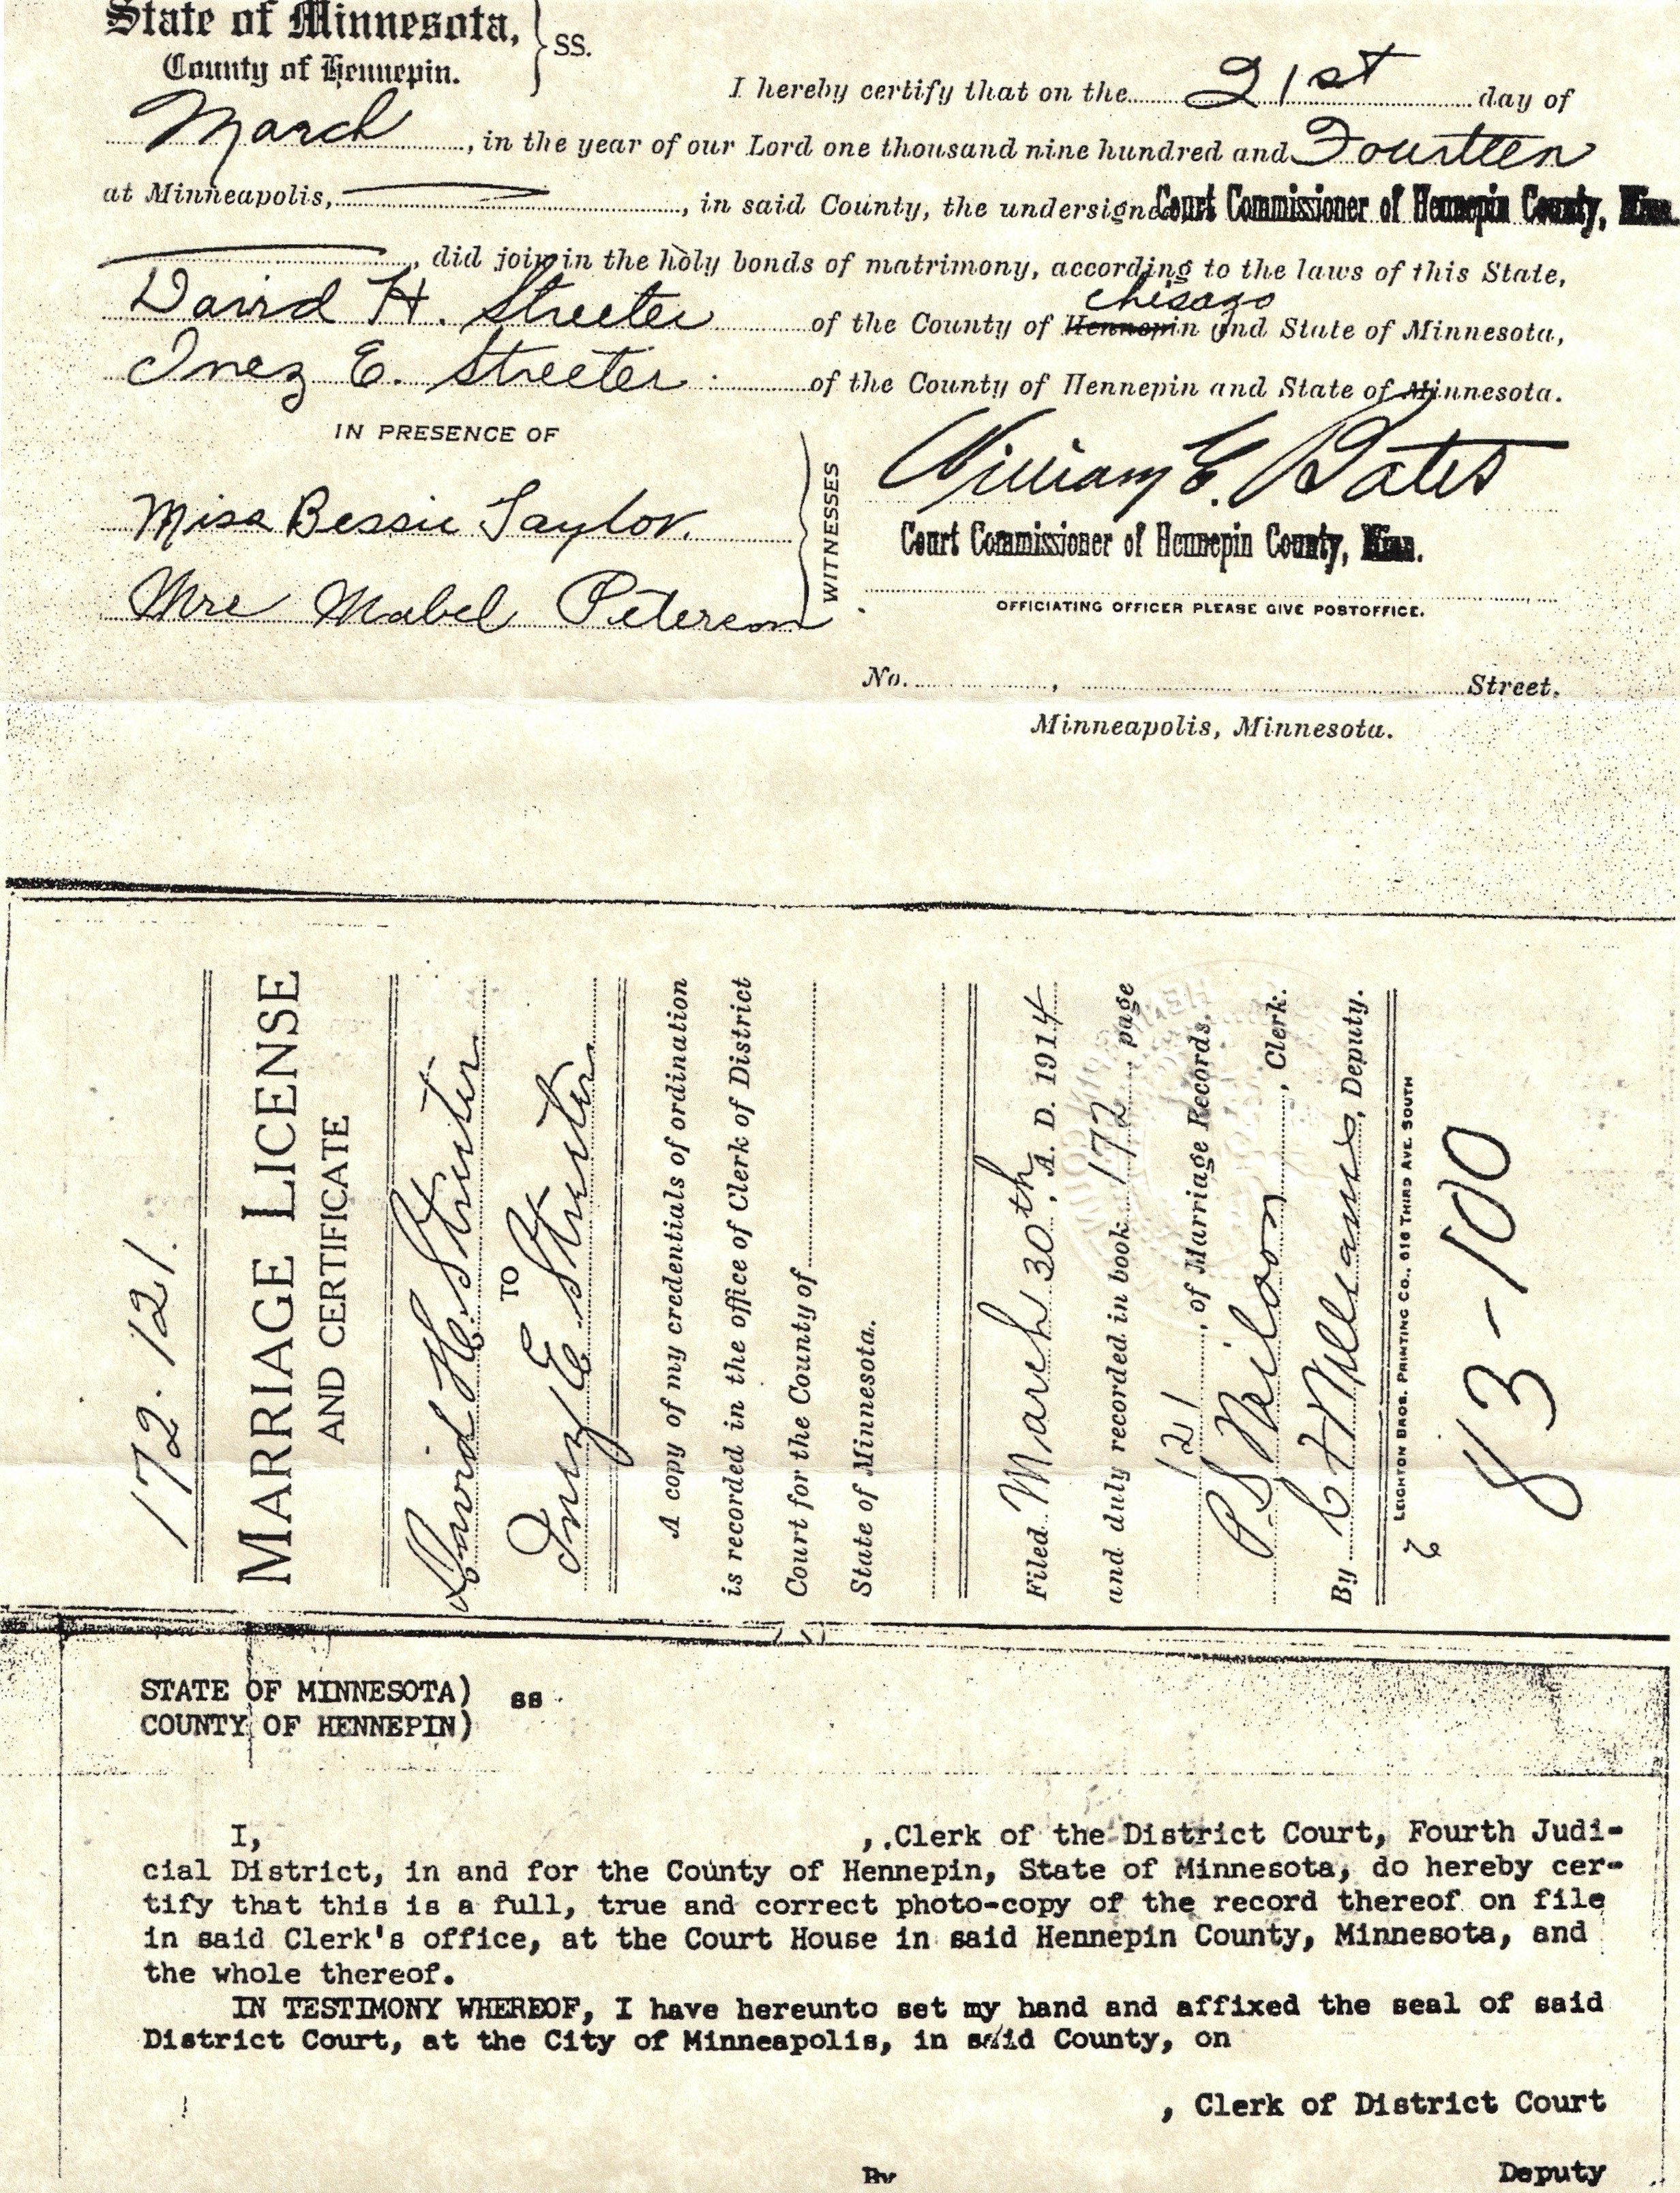 State of Minnesota,
County of Hennepin.
SS.
I hereby certify that on the 21st day of
March, in the year of our Lord one thousand nine hundred and Fourteen
at Minneapolis, in said County, the undersigned Court Commissioner of Hennepin County, Minn.
did join in the holy bonds of matrimony, according to the laws of this State,
Chisago
David H. Streeter of the County of Hennepin and State of Minnesota,
Inez E. Streeter of the County of Hennepin and State of Minnesota.
IN PRESENCE OF
Miss Bessie Taylor.
Mrs Mabel Peterson
WITNESSES
William E. Bates
Court Commissioner of Hennepin County, Minn.
OFFICIATING OFFICER PLEASE GIVE POSTOFFICE.
No. , Street,
Minneapolis, Minnesota.
172. 121.
MARRIAGE LICENSE
AND CERTIFICATE
David H. Streeter
TO
Inez E. Streeter
A copy of my credentials of ordination
is recorded in the office of Clerk of District
Court for the County of
State of Minnesota.
Filed March 30th, A. D. 1914
and duly recorded in book 172 page
121, of Marriage Records.
P. S. Neilson, Clerk.
By Williams, Deputy.
LEIGHTON BROS. PRINTING CO., 616 THIRD AVE. SOUTH
2
83-100
STATE OF MINNESOTA) ss
COUNTY OF HENNEPIN)
I, , Clerk of the District Court, Fourth Judi-
cial District, in and for the County of Hennepin, State of Minnesota, do hereby cer-
tify that this is a full, true and correct photo-copy of the record thereof on file
in said Clerk's office, at the Court House in said Hennepin County, Minnesota, and
the whole thereof.
IN TESTIMONY WHEREOF, I have hereunto set my hand and affixed the seal of said
District Court, at the City of Minneapolis, in said County, on
, Clerk of District Court
By Deputy